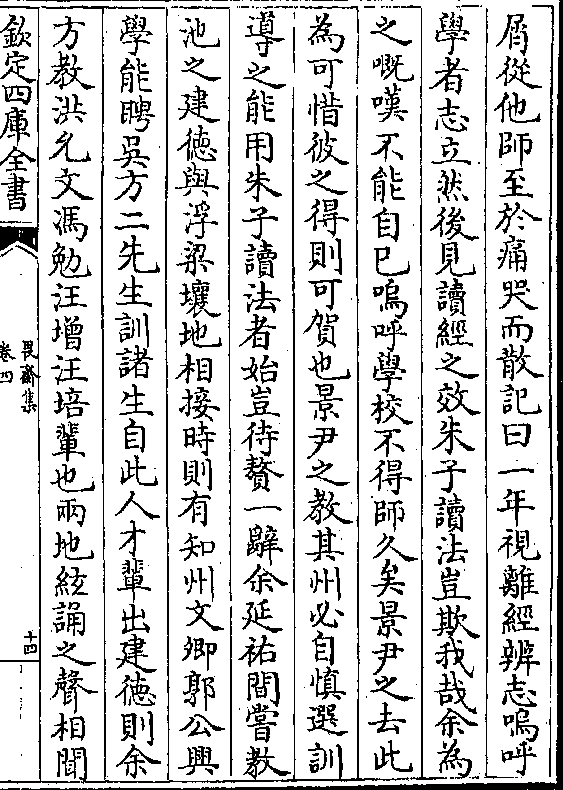 屑從他師至於痛哭而散記曰一年視離經辨志嗚呼
學者志立然後見讀經之效朱子讀法豈欺我哉余為
之嘅嘆不能自已嗚呼學校不得師久矣景尹之去此
為可惜彼之得則可賀也景尹之教其州必自慎選訓
導之能用朱子讀法者始豈待贅一辭余延祐間嘗教
池之建德與浮梁壤地相接時則有知州文卿郭公興
學能聘吳方二先生訓諸生自此人才輩出建德則余
方教洪允文馮勉汪增汪培輩也兩地絃誦之聲相聞
欽定四庫全書
畏齋集
卷四
十四